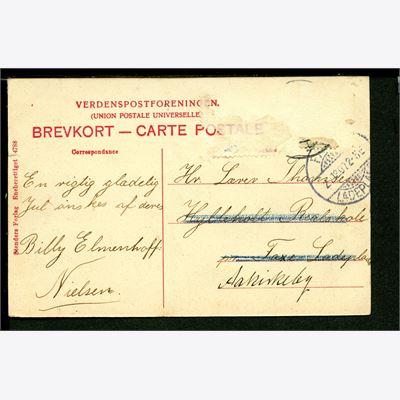 VERDENSPOSTFORENINGEN.
(UNION POSTALE UNIVERSELLE)
BREVKORT — CARTE POSTALE
Correspondance
Stenders Forlag Eneberettiget 4786
En rigtig glædelig
Jul ønskes af deres
Billy Elmenhoff
Nielsen.
Hr. Lærer Thomsen
Hylleholt Realskole
pr. Faxe Ladeplads
Aakirkeby
LADEPL